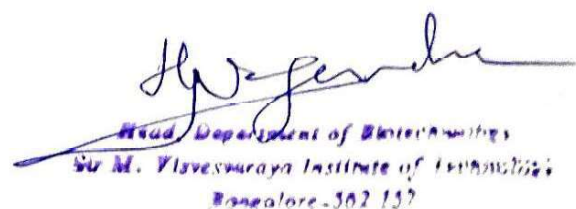 H G Nagendra
Head, Department of Biotechnology
Sir M. Visvesvaraya Institute of Technology
Bangalore-562 157